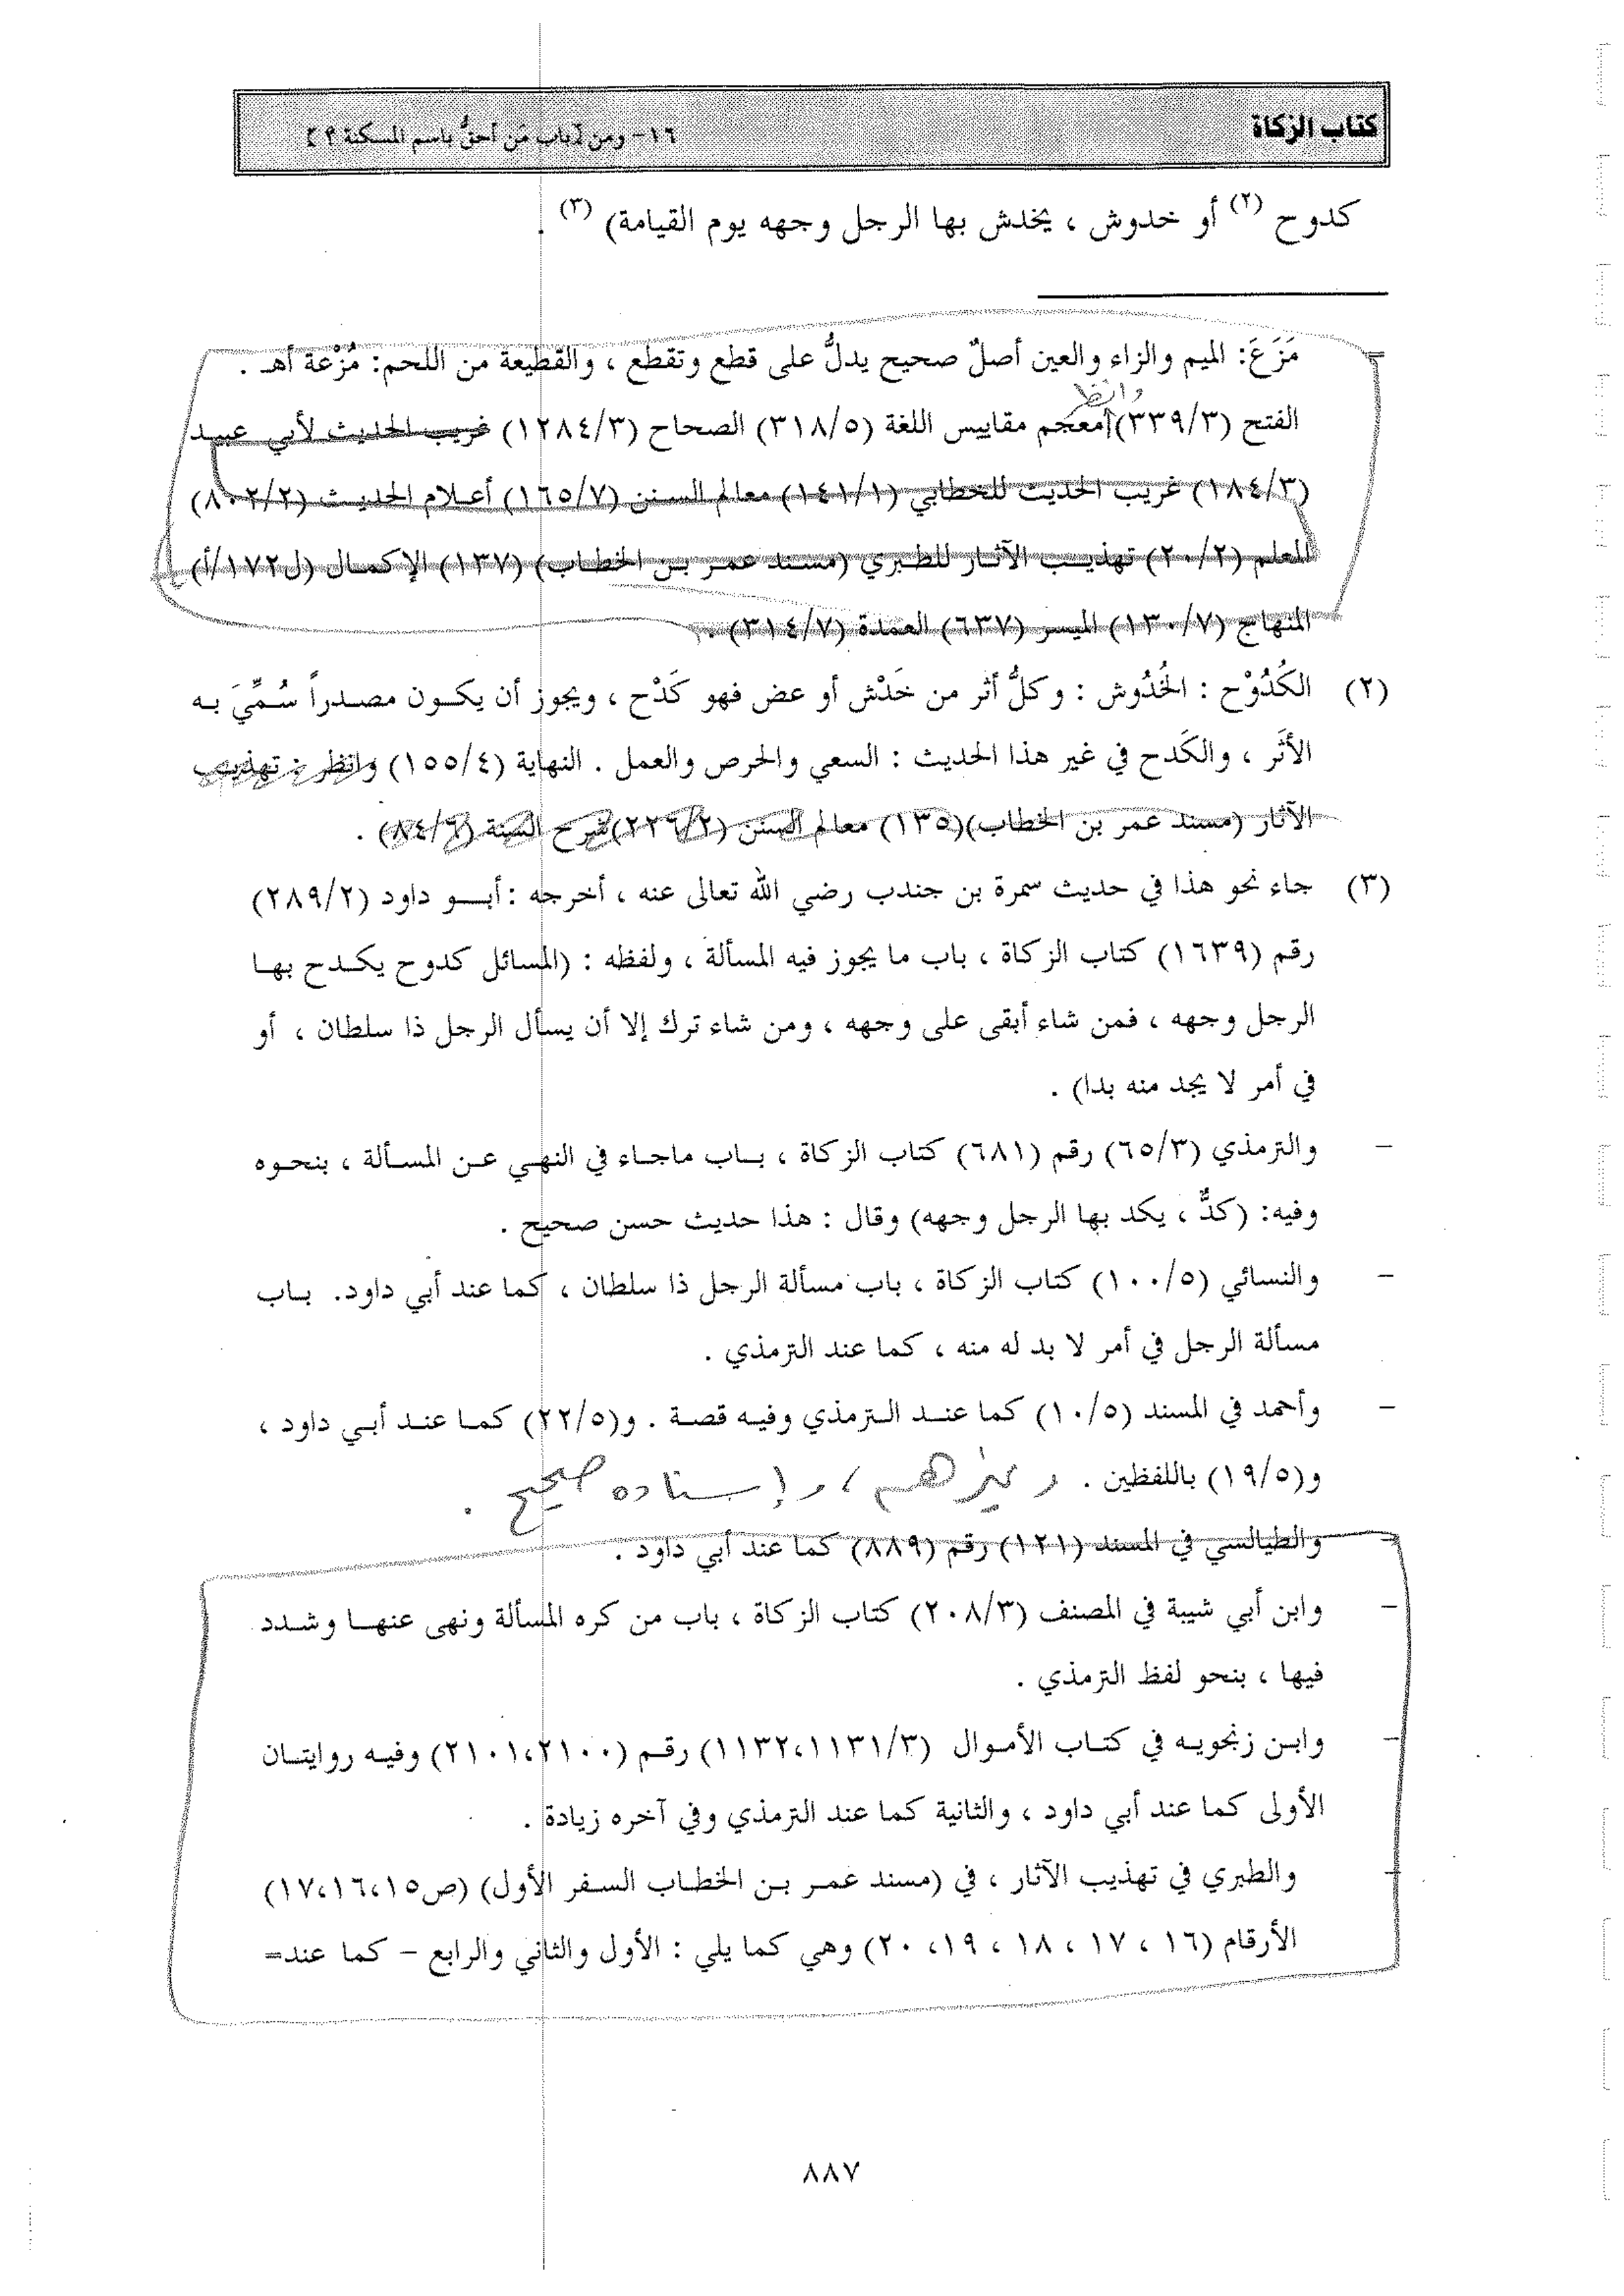 كتاب الزكاة
١٦- ومن [باب مَن أحقُّ باسم المسكنة؟]
كدوح (٢) أو خدوش ، يخدش بها الرجل وجهه يوم القيامة) (٣) .
= مَزَعَ: الميم والزاء والعين أصلٌ صحيح يدلُّ على قطع وتقطع ، والقطيعة من اللحم: مُزْعة أهـ .
وانظر
الفتح (٣٣٩/٣) معجم مقاييس اللغة (٣١٨/٥) الصحاح (١٢٨٤/٣) غريب الحديث لأبي عبيد
(١٨٤/٣) غريب الحديث للخطابي (١٤١/١) معالم السنن (١٦٥/٧) أعلام الحديث (٨٠٢/٢)
المعلم (٢٠/٢) تهذيب الآثار للطبري (مسند عمر بن الخطاب) (١٣٧) الإكمال (ل١٧٢/أ)
المنهاج (١٣٠/٧) الميسر (٦٣٧) العمدة (٣١٤/٧) .
(٢) الكُدُوْح : الخُدُوش : وكلُّ أثر من خَدْش أو عض فهو كَدْح ، ويجوز أن يكون مصدراً سُمِّيَ به
الأثَر ، والكَدح في غير هذا الحديث : السعي والحرص والعمل . النهاية (١٥٥/٤) وانظر : تهذيب
الآثار (مسند عمر بن الخطاب)(١٣٥) معالم السنن (٢٢٦/٢) شرح السنة (٨٤/٦) .
(٣) جاء نحو هذا في حديث سمرة بن جندب رضي الله تعالى عنه ، أخرجه : أبو داود (٢٨٩/٢)
رقم (١٦٣٩) كتاب الزكاة ، باب ما يجوز فيه المسألة ، ولفظه : (المسائل كدوح يكدح بها
الرجل وجهه ، فمن شاء أبقى على وجهه ، ومن شاء ترك إلا أن يسأل الرجل ذا سلطان ، أو
في أمر لا يجد منه بدا) .
- والترمذي (٦٥/٣) رقم (٦٨١) كتاب الزكاة ، باب ماجاء في النهي عن المسألة ، بنحوه
وفيه: (كدٌّ ، يكد بها الرجل وجهه) وقال : هذا حديث حسن صحيح .
- والنسائي (١٠٠/٥) كتاب الزكاة ، باب مسألة الرجل ذا سلطان ، كما عند أبي داود. باب
مسألة الرجل في أمر لا بد له منه ، كما عند الترمذي .
- وأحمد في المسند (١٠/٥) كما عند الترمذي وفيه قصة . و(٢٢/٥) كما عند أبي داود ،
و(١٩/٥) باللفظين . وغيرهم ، وإسناده صحيح .
- والطيالسي في المسند (١٢١) رقم (٨٨٩) كما عند أبي داود .
- وابن أبي شيبة في المصنف (٢٠٨/٣) كتاب الزكاة ، باب من كره المسألة ونهى عنها وشدد
فيها ، بنحو لفظ الترمذي .
- وابن زنجويه في كتاب الأموال (١١٣٢،١١٣١/٣) رقم (٢١٠١،٢١٠٠) وفيه روايتان
الأولى كما عند أبي داود ، والثانية كما عند الترمذي وفي آخره زيادة .
- والطبري في تهذيب الآثار ، في (مسند عمر بن الخطاب السفر الأول) (ص١٧،١٦،١٥)
الأرقام (١٦ ، ١٧ ، ١٨ ، ١٩، ٢٠) وهي كما يلي : الأول والثاني والرابع - كما عند=
٨٨٧